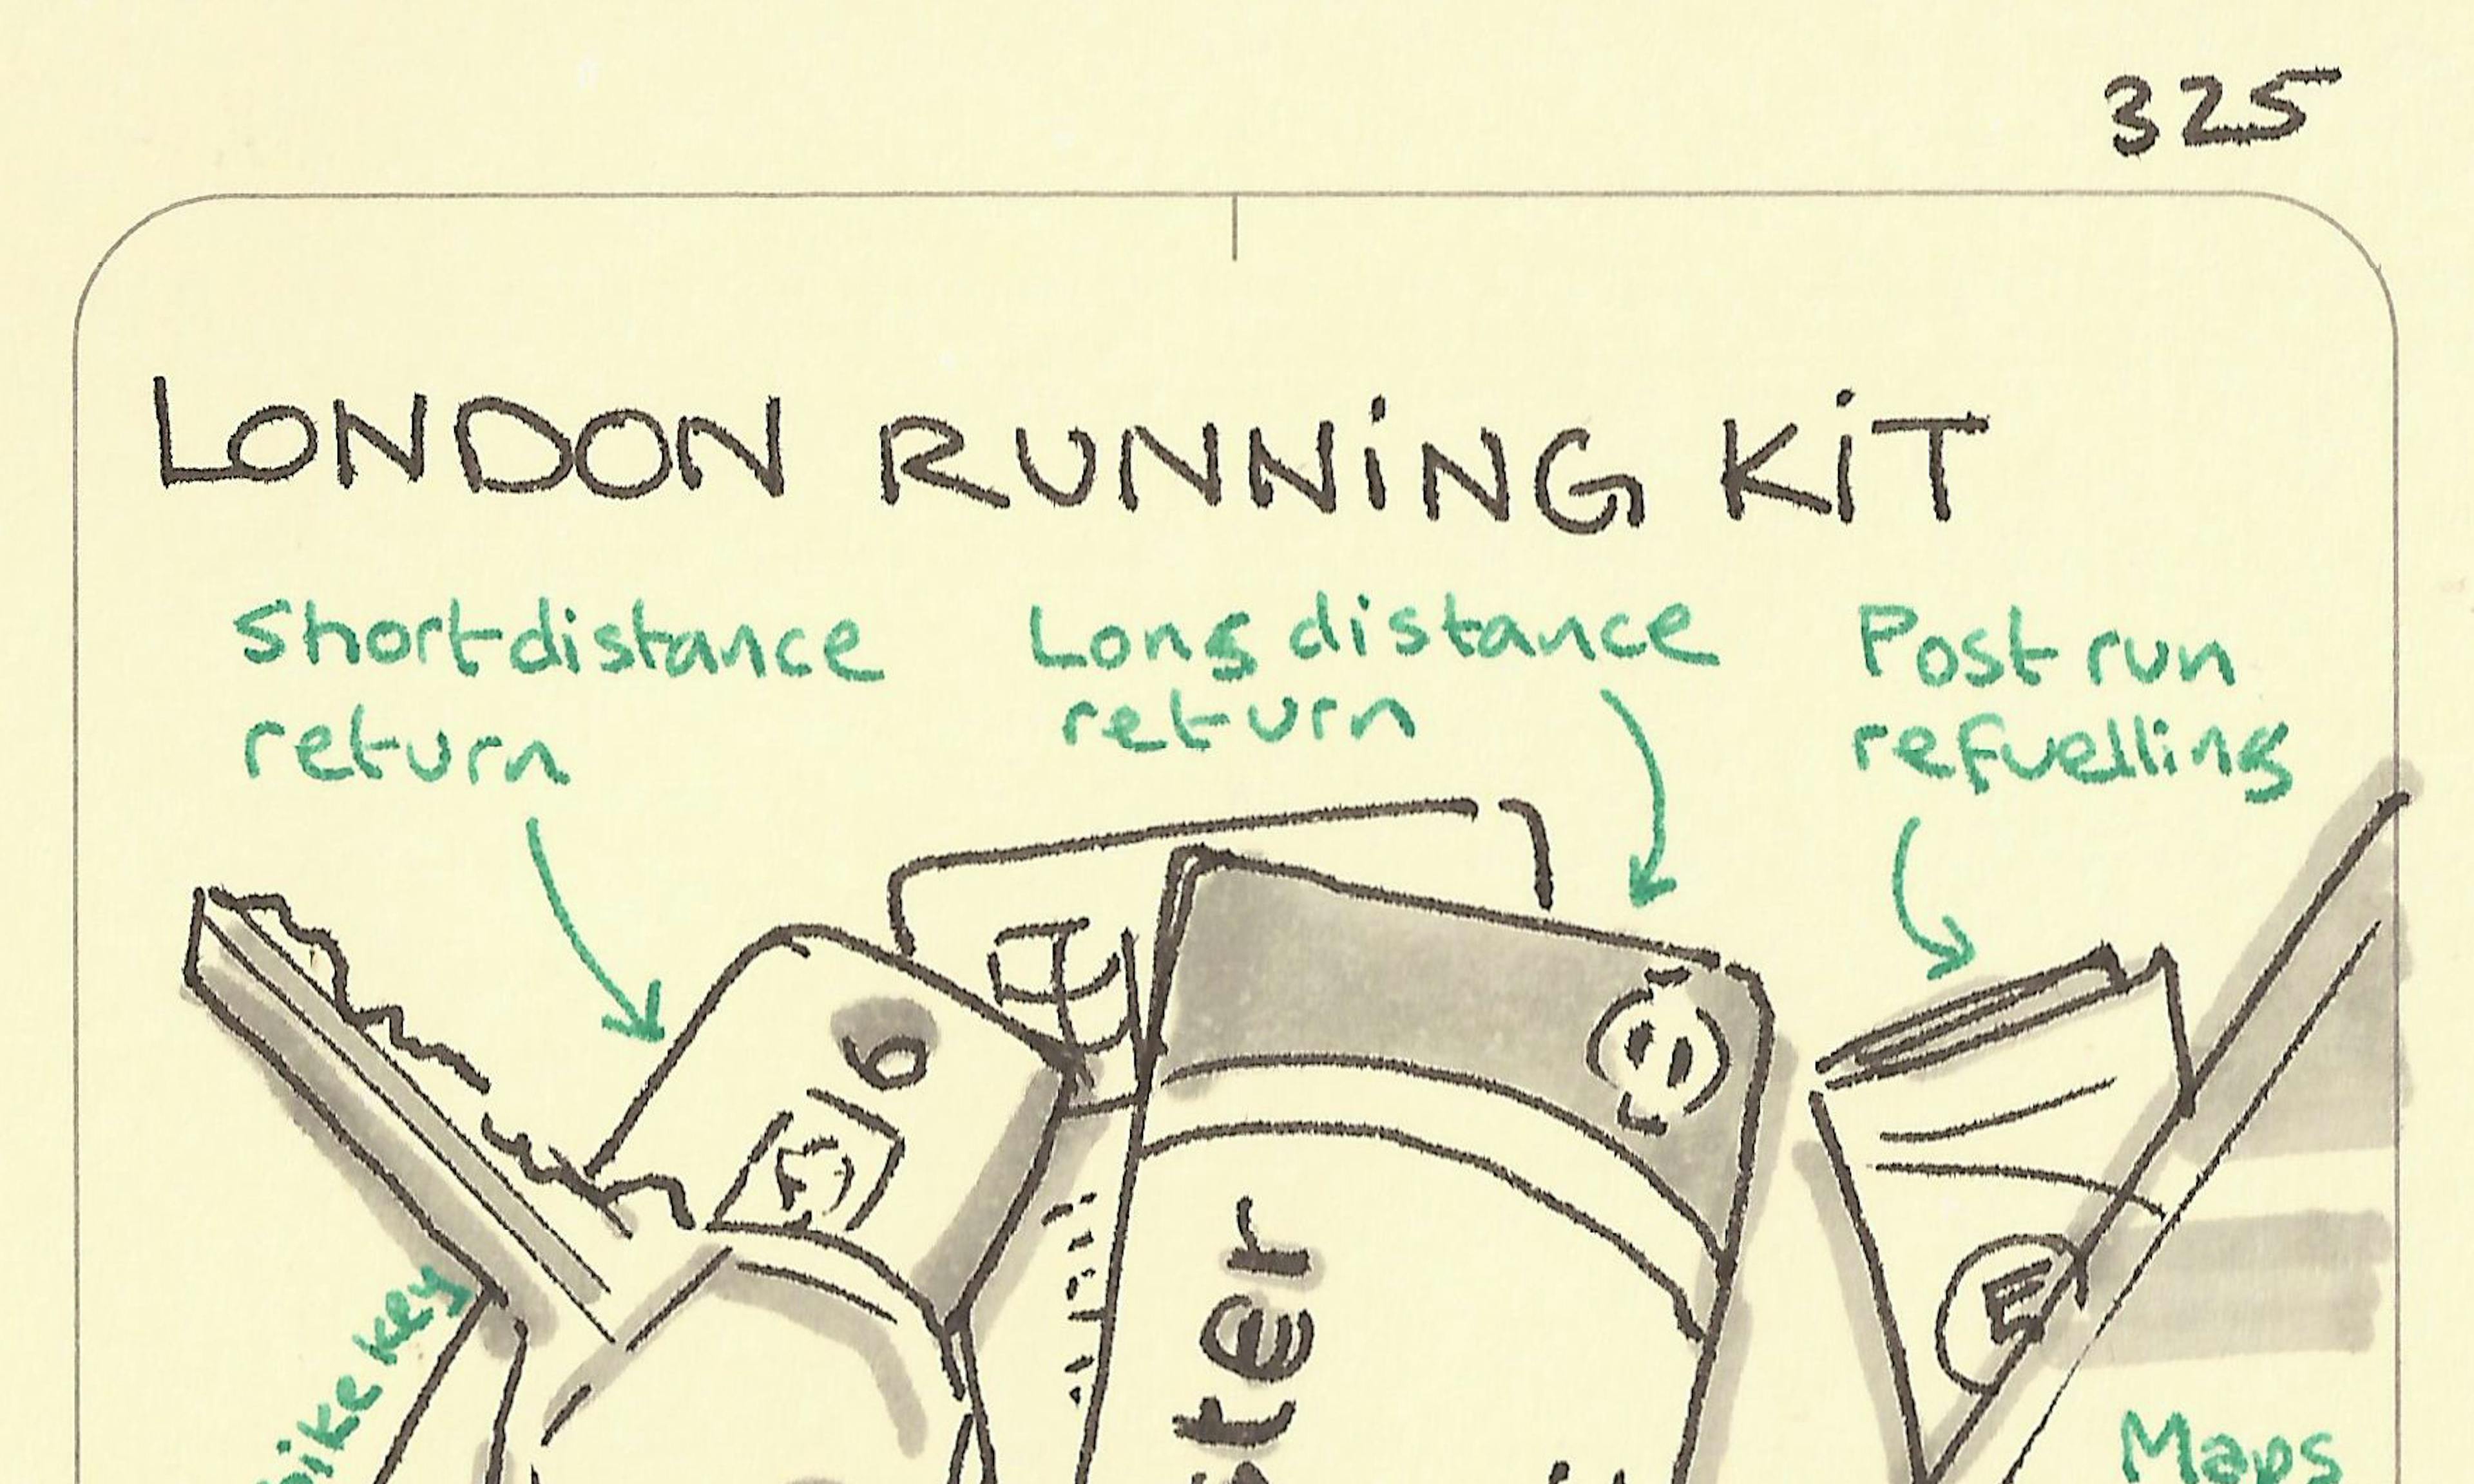 325
LONDON RUNNING KIT
Short distance
return
Long distance
return
Post run
refuelling
6
E
key
Maps